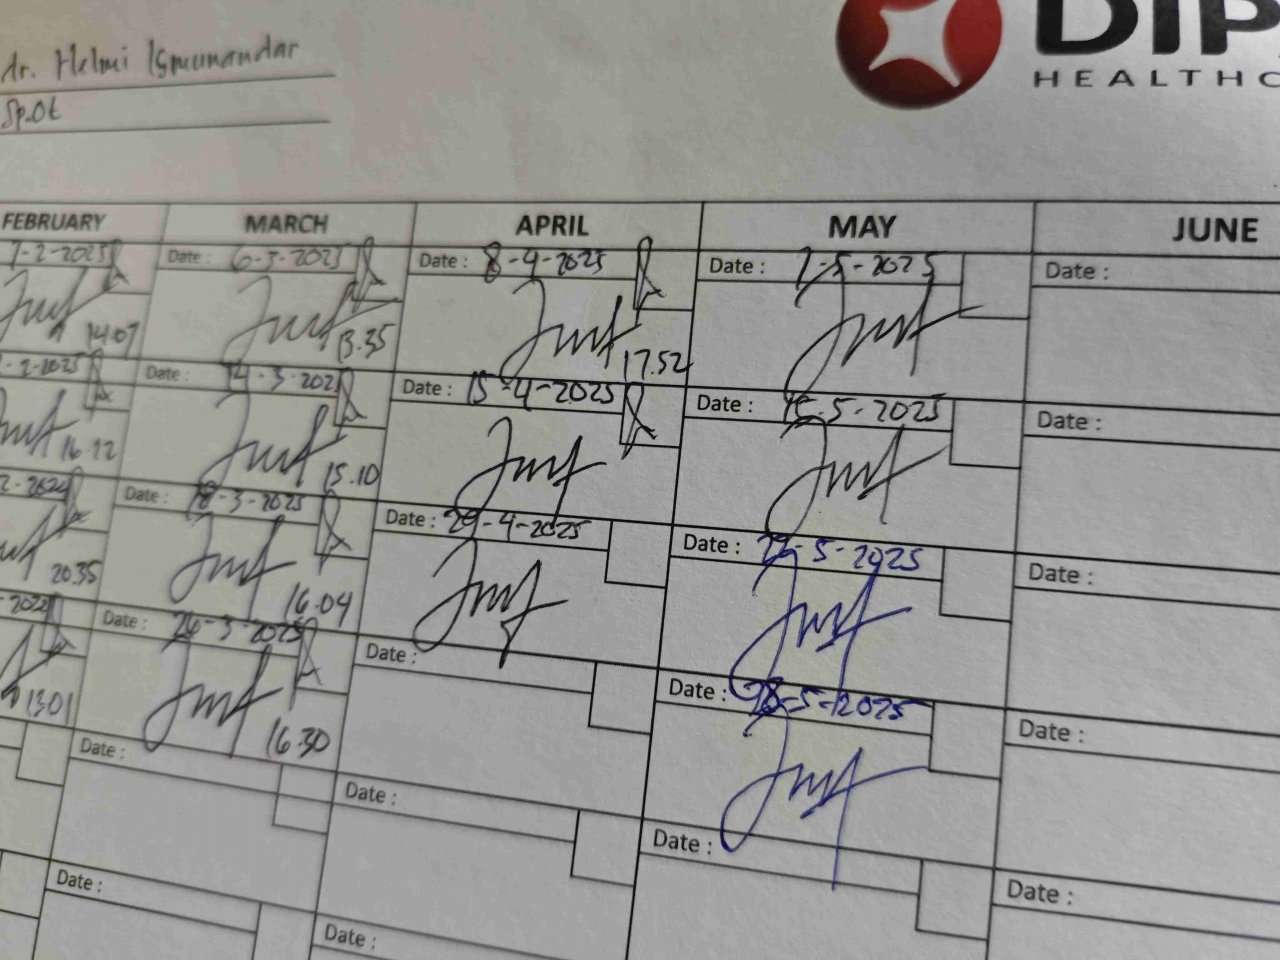 dr. Helmi Ismunandar
Sp.Ot
DIP
HEALTHC
FEBRUARY MARCH APRIL MAY JUNE
7-2-2025 Date : 6-3-2025 Date : 8-4-2025 Date : 7-5-2025 Date :
14.07 13.35 17.52
-2-2025 Date : 14-3-202 Date : 15-4-2025 Date : 15-5-2025 Date :
16.12 15.10
Date : 18-3-2025 Date : 29-4-2025 Date : 22-5-2025 Date :
20.35 16.04
Date : 26-3-2025 Date : Date : 28-5-2025 Date :
13.01 16.30
Date : Date : Date : Date :
Date : Date :